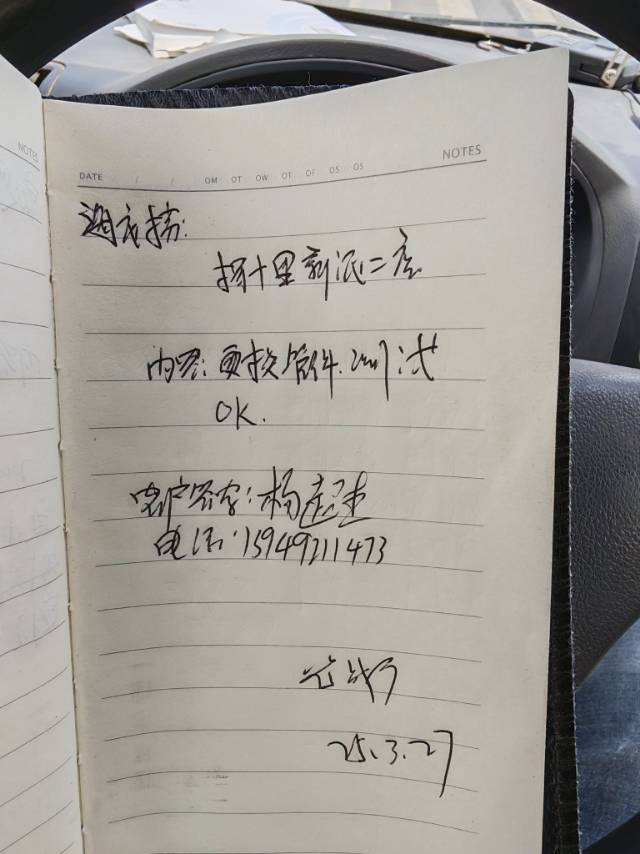 NOTES
DATE / / OM OT OW OT OF OS OS NOTES
扬十里新派二店
内容:更换管件.测试
OK.
客户签字:杨起建
电话:15949211473
25.3.27